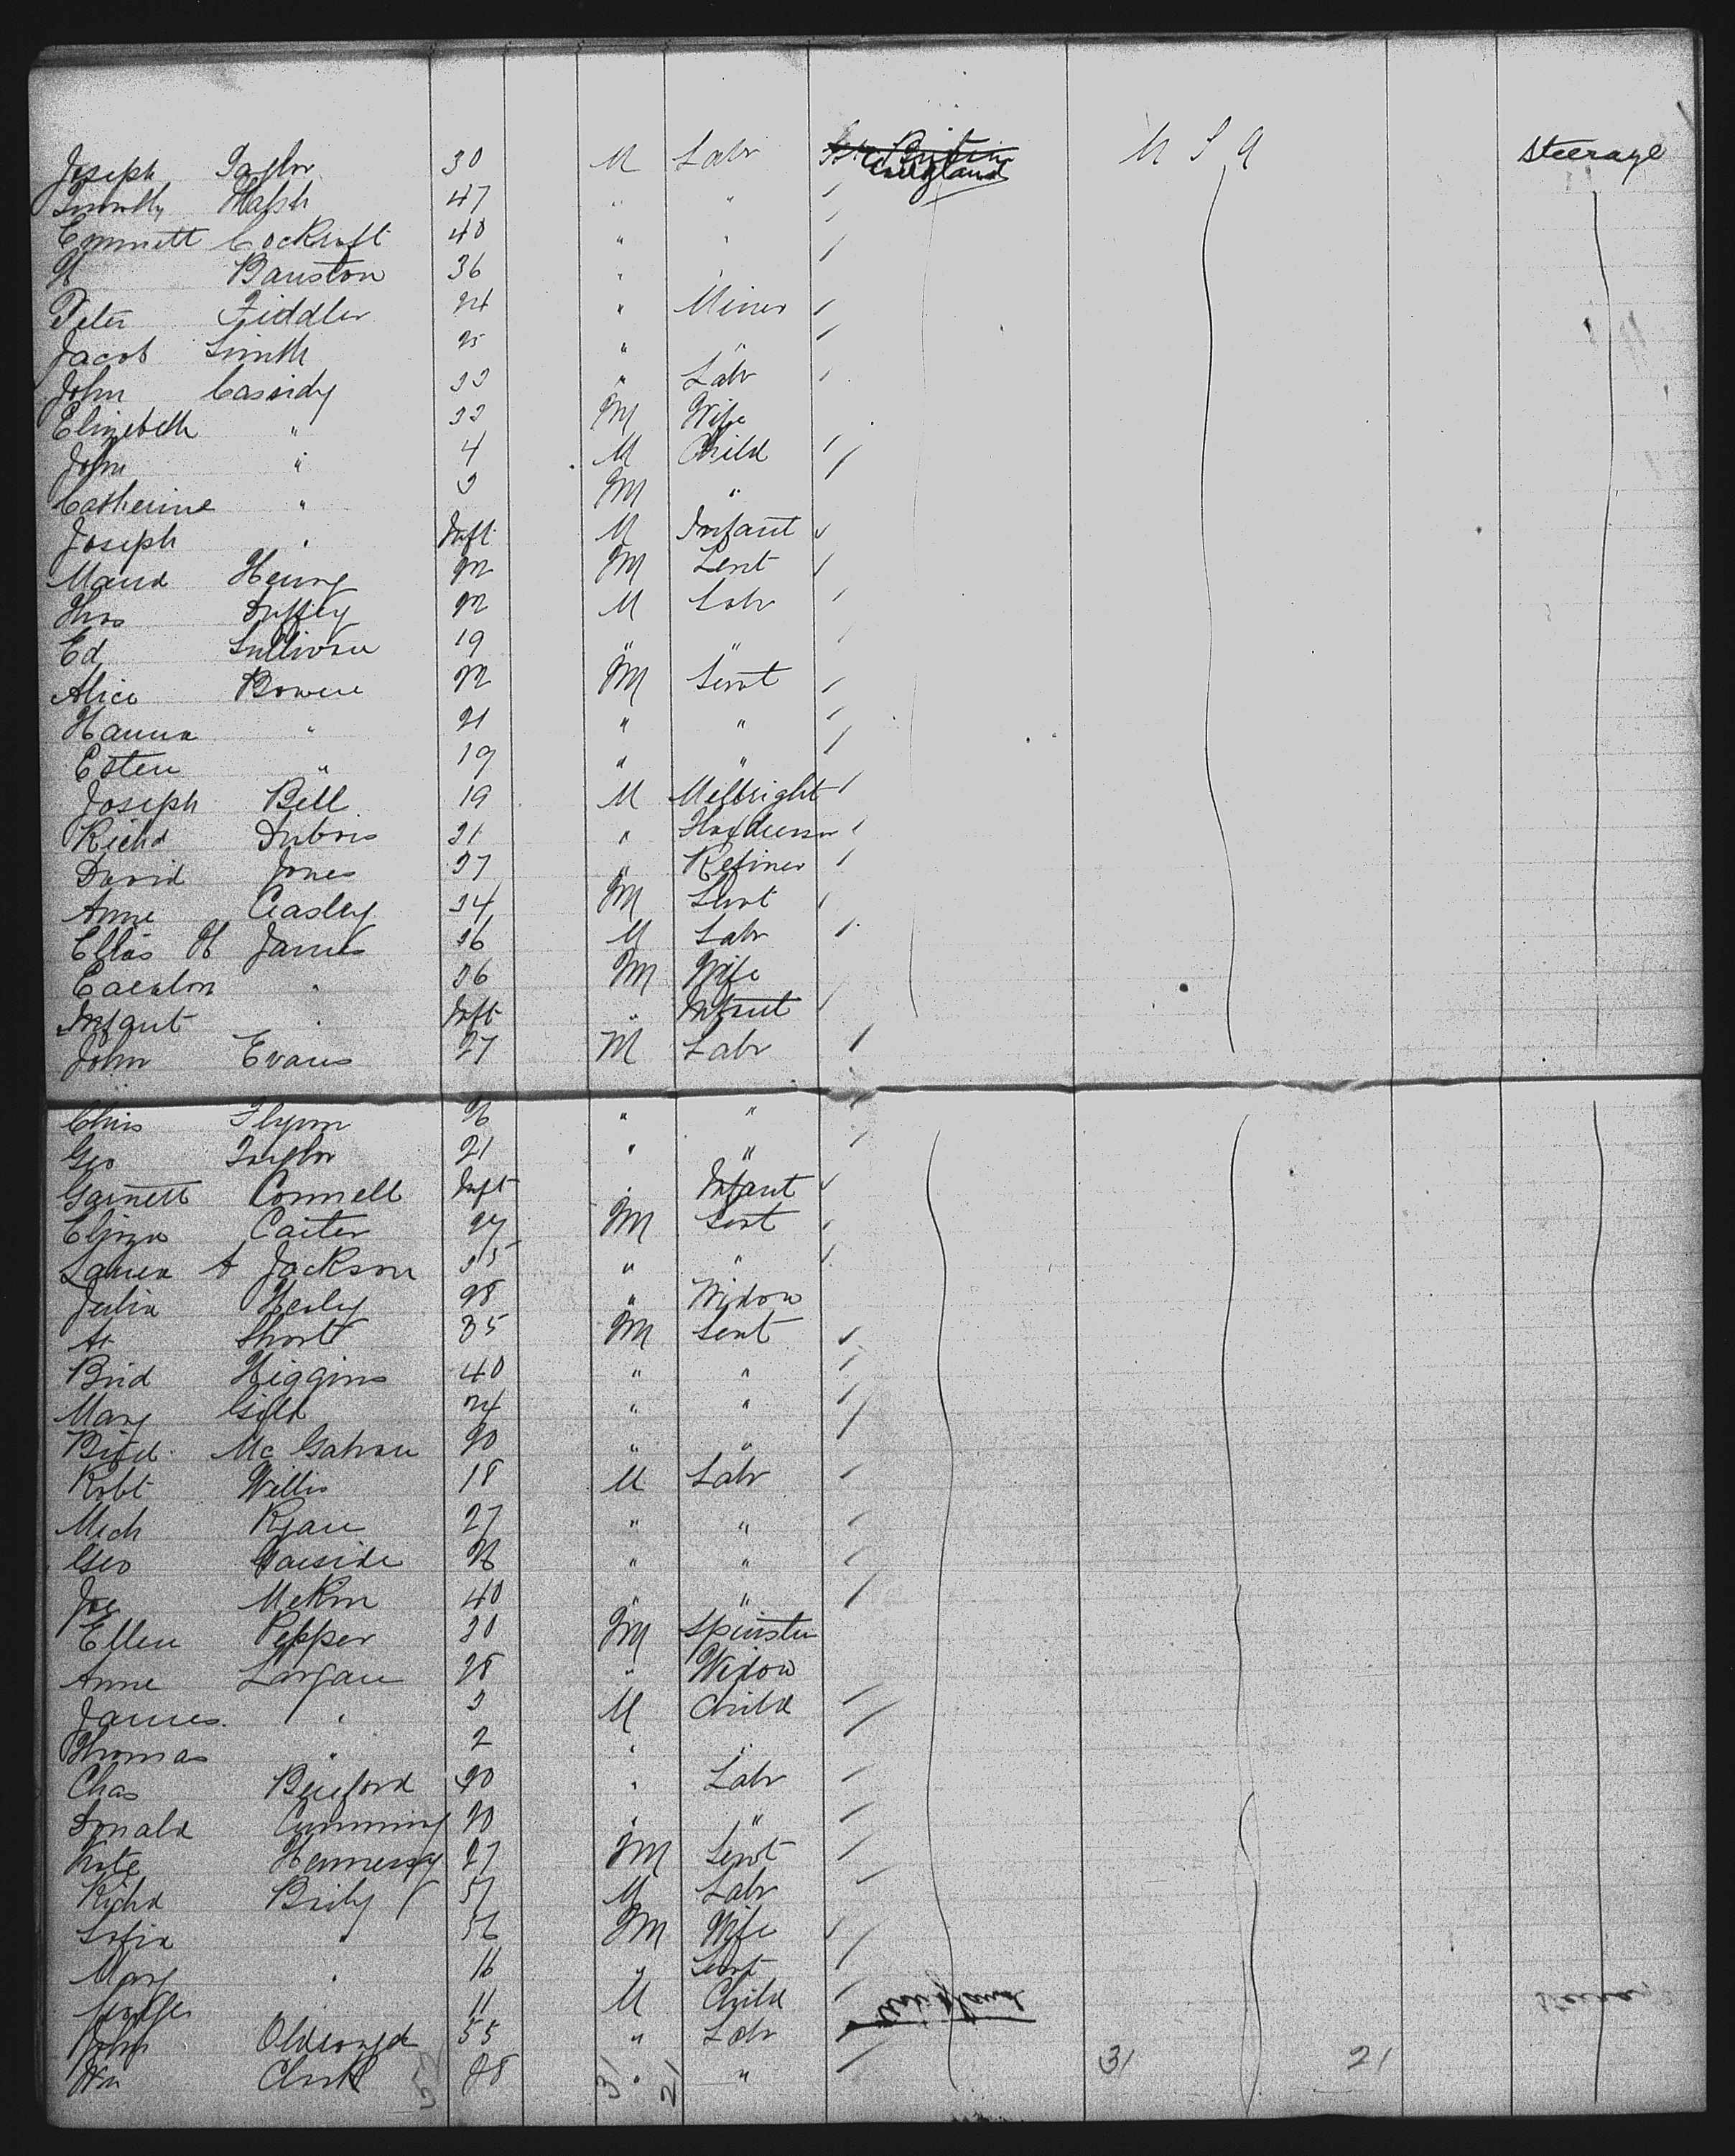 Joseph Taylor 30 M Labr Gt Britain England U S A Steerage
Walsh 47 " "
Emmett Cockroft 40 " "
H Banston 36 "
Peter Fiddler 24 " Miner
Jacob Smith 25 " "
John Cassidy 33 " Labr
Elizebeth " 33 Fm Wife
John " 4 M Child
Catherine " 3 Fm "
Joseph " Inft M Infant
Maud Henry 22 Fm Servt
Thos Duffey 22 M Labr
Ed Sullivan 19 " "
Alice Bowen 22 Fm Servt
Hanna " 21 " "
Esten " 19 " "
Joseph Bell 19 M Millright
Richd Dubois 31 "
David Jones 37 " Refiner
Anne Ceasley 34 Fm Servt
Ellas H James 36 M Labr
" 36 Fm Wife
Infant " Inft " Infant
John Evans 27 M Labr
Chris Flynn 26 " "
Geo Taylor 21 " "
Garnett Connell Inft " Infant
Eliza Carter 27 Fm Servt
Laura A Jackson 35 " "
Julia Healy 28 " Widow
A Short 35 Fm Servt
Brid Higgins 40 " "
Mary Gild 24 " "
Brid Mc Gahan 20 " "
Robt Willis 18 M Labr
Mich Ryan 27 " "
Geo Garside 26 " "
Joe McKin 40 " "
Ellen Pepper 30 Fm Spinster
Anne Largan 28 " Widow
James " 3 M Child
Thomas " 2 " "
Chas Benford 20 " Labr
Donald Cumming 20 " "
Kate Hennessy 27 Fm Servt
Richd Brily 57 M Labr
Sofia " 56 Fm Wife
Mary " 16 " Servt
" 11 M Child England Steerage
John 55 " Labr
Wm Clark 28 " "
52 31 21 31 21